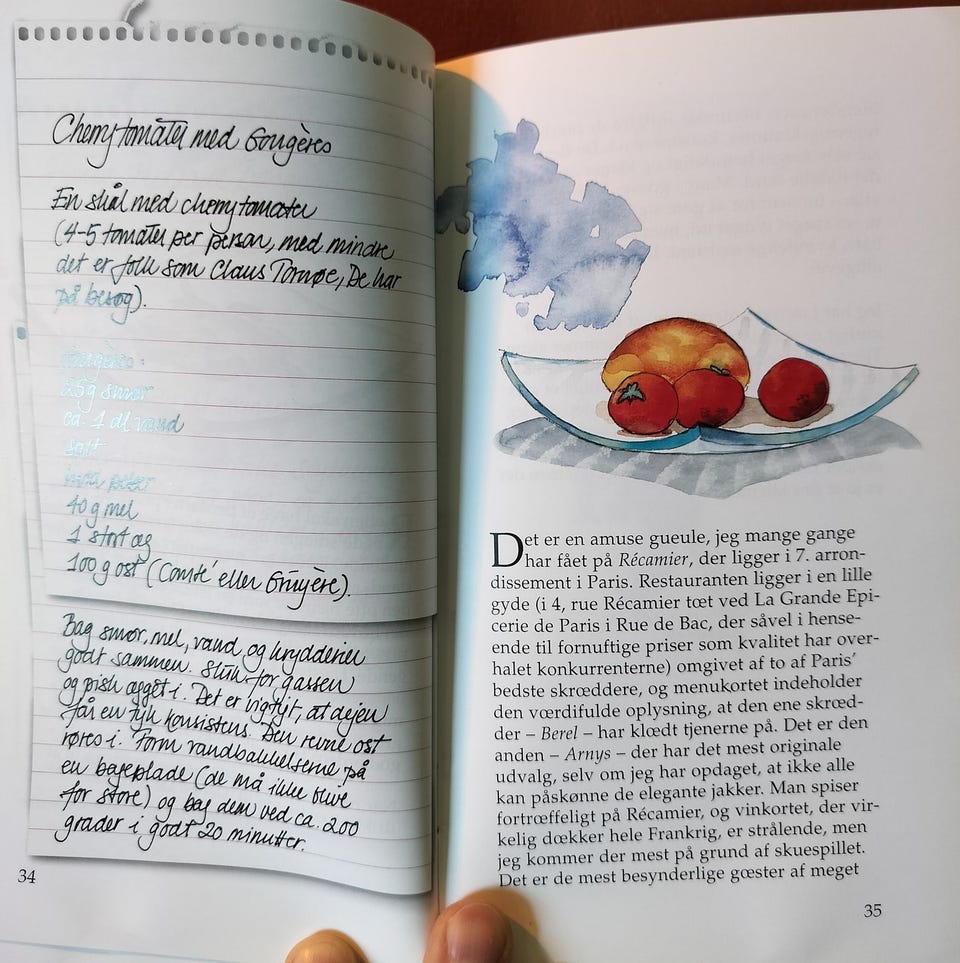 Cherrytomater med Gougères
En skål med cherrytomater
(4-5 tomater per person, med mindre
det er folk som Claus Tornøe, De har
på besøg).
Gougères:
25g smør
ca. 1 dl vand
salt
hvid peber
40 g mel
1 stort æg
100 g ost (Comté eller Gruyère).
Bag smør, mel, vand, og krydderier
godt sammen. Sluk for gassen
og pisk ægget i. Det er vigtigt, at dejen
får en tyk konsistens. Den revne ost
røres i. Form vandbakkelserne på
en bageplade (de må ikke blive
for store) og bag dem ved ca. 200
grader i godt 20 minutter.
34
Det er en amuse gueule, jeg mange gange
har fået på Récamier, der ligger i 7. arron-
dissement i Paris. Restauranten ligger i en lille
gyde (i 4, rue Récamier tæt ved La Grande Epi-
cerie de Paris i Rue de Bac, der såvel i hense-
ende til fornuftige priser som kvalitet har over-
halet konkurrenterne) omgivet af to af Paris'
bedste skræddere, og menukortet indeholder
den værdifulde oplysning, at den ene skræd-
der – Berel – har klædt tjenerne på. Det er den
anden – Arnys – der har det mest originale
udvalg, selv om jeg har opdaget, at ikke alle
kan påskønne de elegante jakker. Man spiser
fortræffeligt på Récamier, og vinkortet, der vir-
kelig dækker hele Frankrig, er strålende, men
jeg kommer der mest på grund af skuespillet.
Det er de mest besynderlige gæster af meget
35